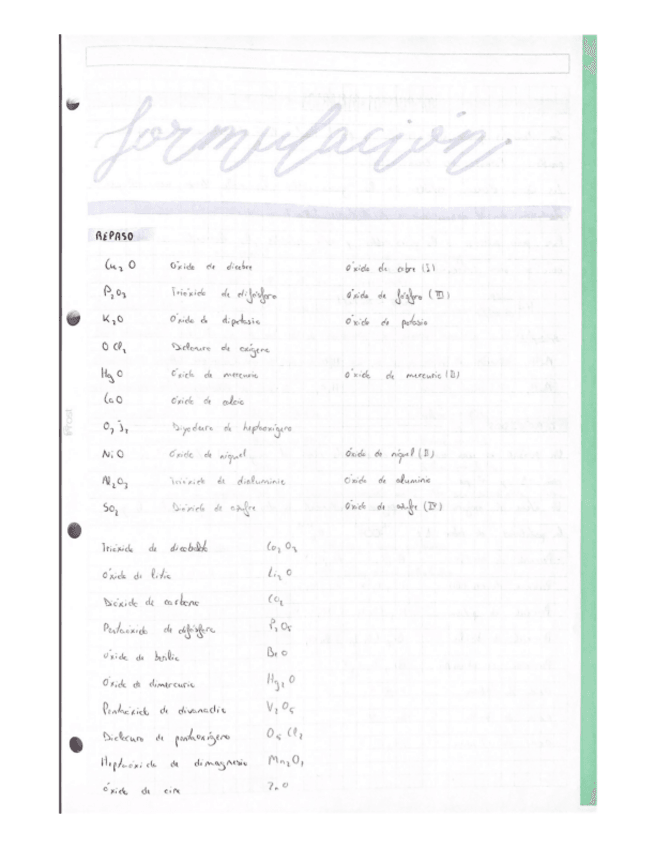 formulación
REPASO
Cu₂O Óxido de dicobre óxido de cobre (I)
P₂O₃ Trióxido de difósforo óxido de fósforo (III)
K₂O Óxido de dipotasio óxido de potasio
OCl₂ Dicloruro de oxígeno
HgO óxido de mercurio óxido de mercurio (II)
CaO óxido de calcio
O₇I₂ Diyoduro de heptaoxígeno
NiO óxido de níquel óxido de níquel (II)
Al₂O₃ Trióxido de dialuminio óxido de aluminio
SO₂ Dióxido de azufre óxido de azufre (IV)
Trióxido de dicobalto Co₂O₃
óxido de litio Li₂O
Dióxido de carbono CO₂
Pentaóxido de difósforo P₂O₅
óxido de berilio BeO
óxido de dimercurio Hg₂O
Pentaóxido de divanadio V₂O₅
Dicloruro de pentaoxígeno O₅Cl₂
Heptaóxido de dimagnesio Mn₂O₇
óxido de cinc ZnO